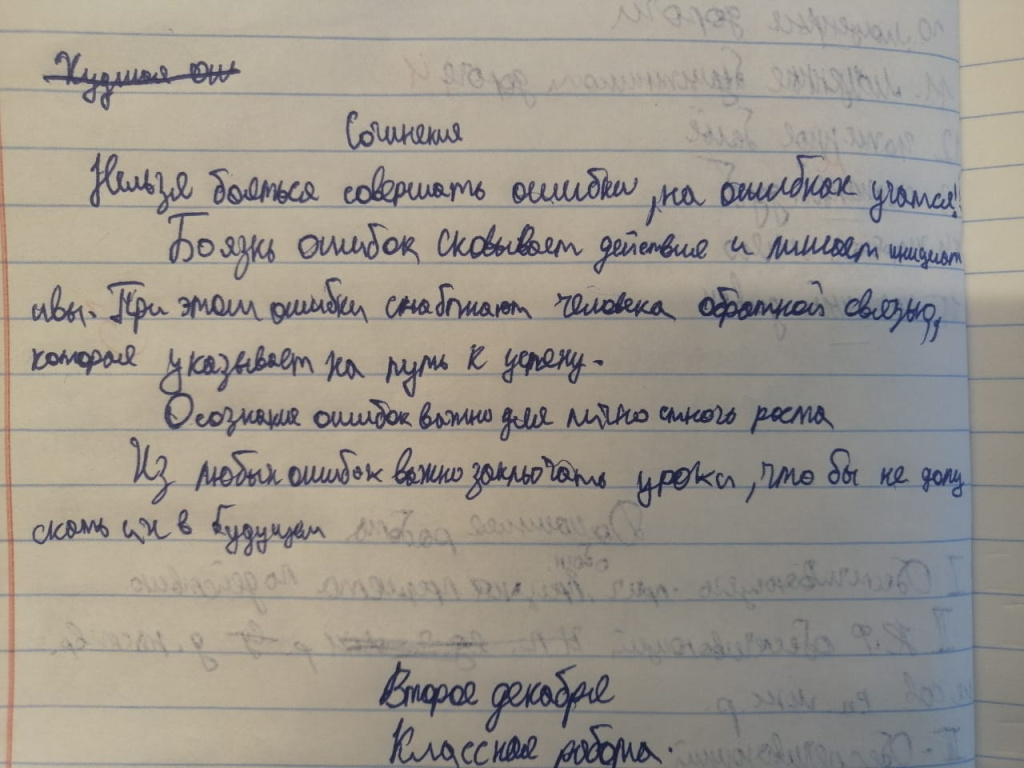 Сочинения
Нельзя бояться совершать ошибки, на ошибках учатся!
Боязнь ошибок сковывает действие и лишает инициат
ивы. При этом ошибки снабжают человека обратной связью,
которая указывает на путь к успеху.
Осознания ошибок важно для личностного роста
Из любых ошибок важно заключать уроки, что бы не допу
скать их в будущем
Второе декабря
Классная работа.